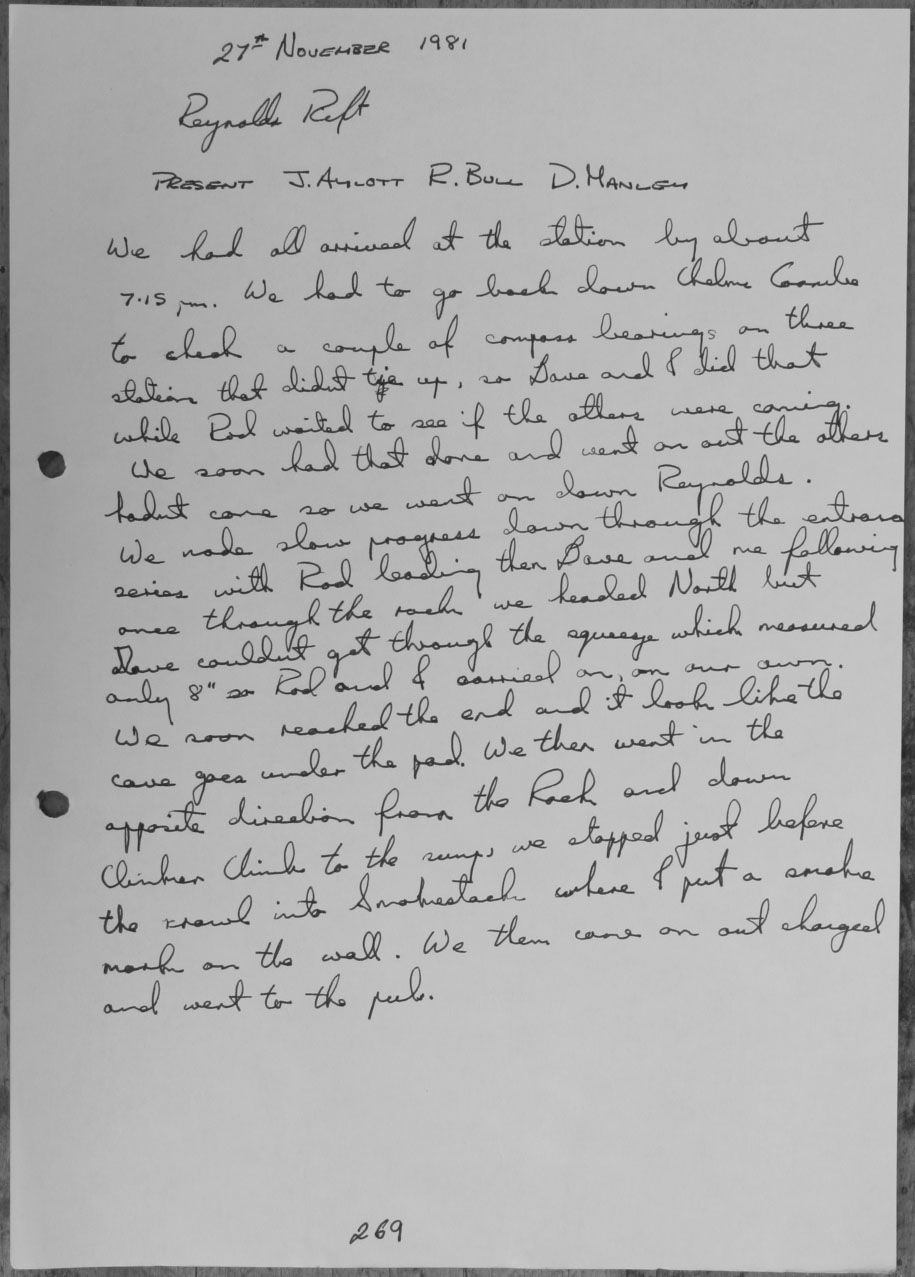 27th NOVEMBER 1981
Reynolds Rift
PRESENT J. AYLOTT R. BULL D. MANLEY
We had all arrived at the station by about
7.15 pm. We had to go back down Chelms Coombe
to check a couple of compass bearings on three
station that didnt tie up, so Dave and I did that
while Rod waited to see if the others were coming.
We soon had that done and went on out the others
hadnt come so we went on down Reynolds.
We made slow progress down through the entrance
series with Rod leading then Dave and me following
once through the rack we headed North but
Dave couldnt get through the squeeze which measured
only 8" so Rod and I carried on, on our own.
We soon reached the end and it look like the
cave goes under the pad. We then went in the
opposite direction from the Rack and down
Clinker Climb to the sump, we stopped just before
the crawl into Smokestack where I put a smoke
mark on the wall. We them came on out changed
and went to the pub.
269